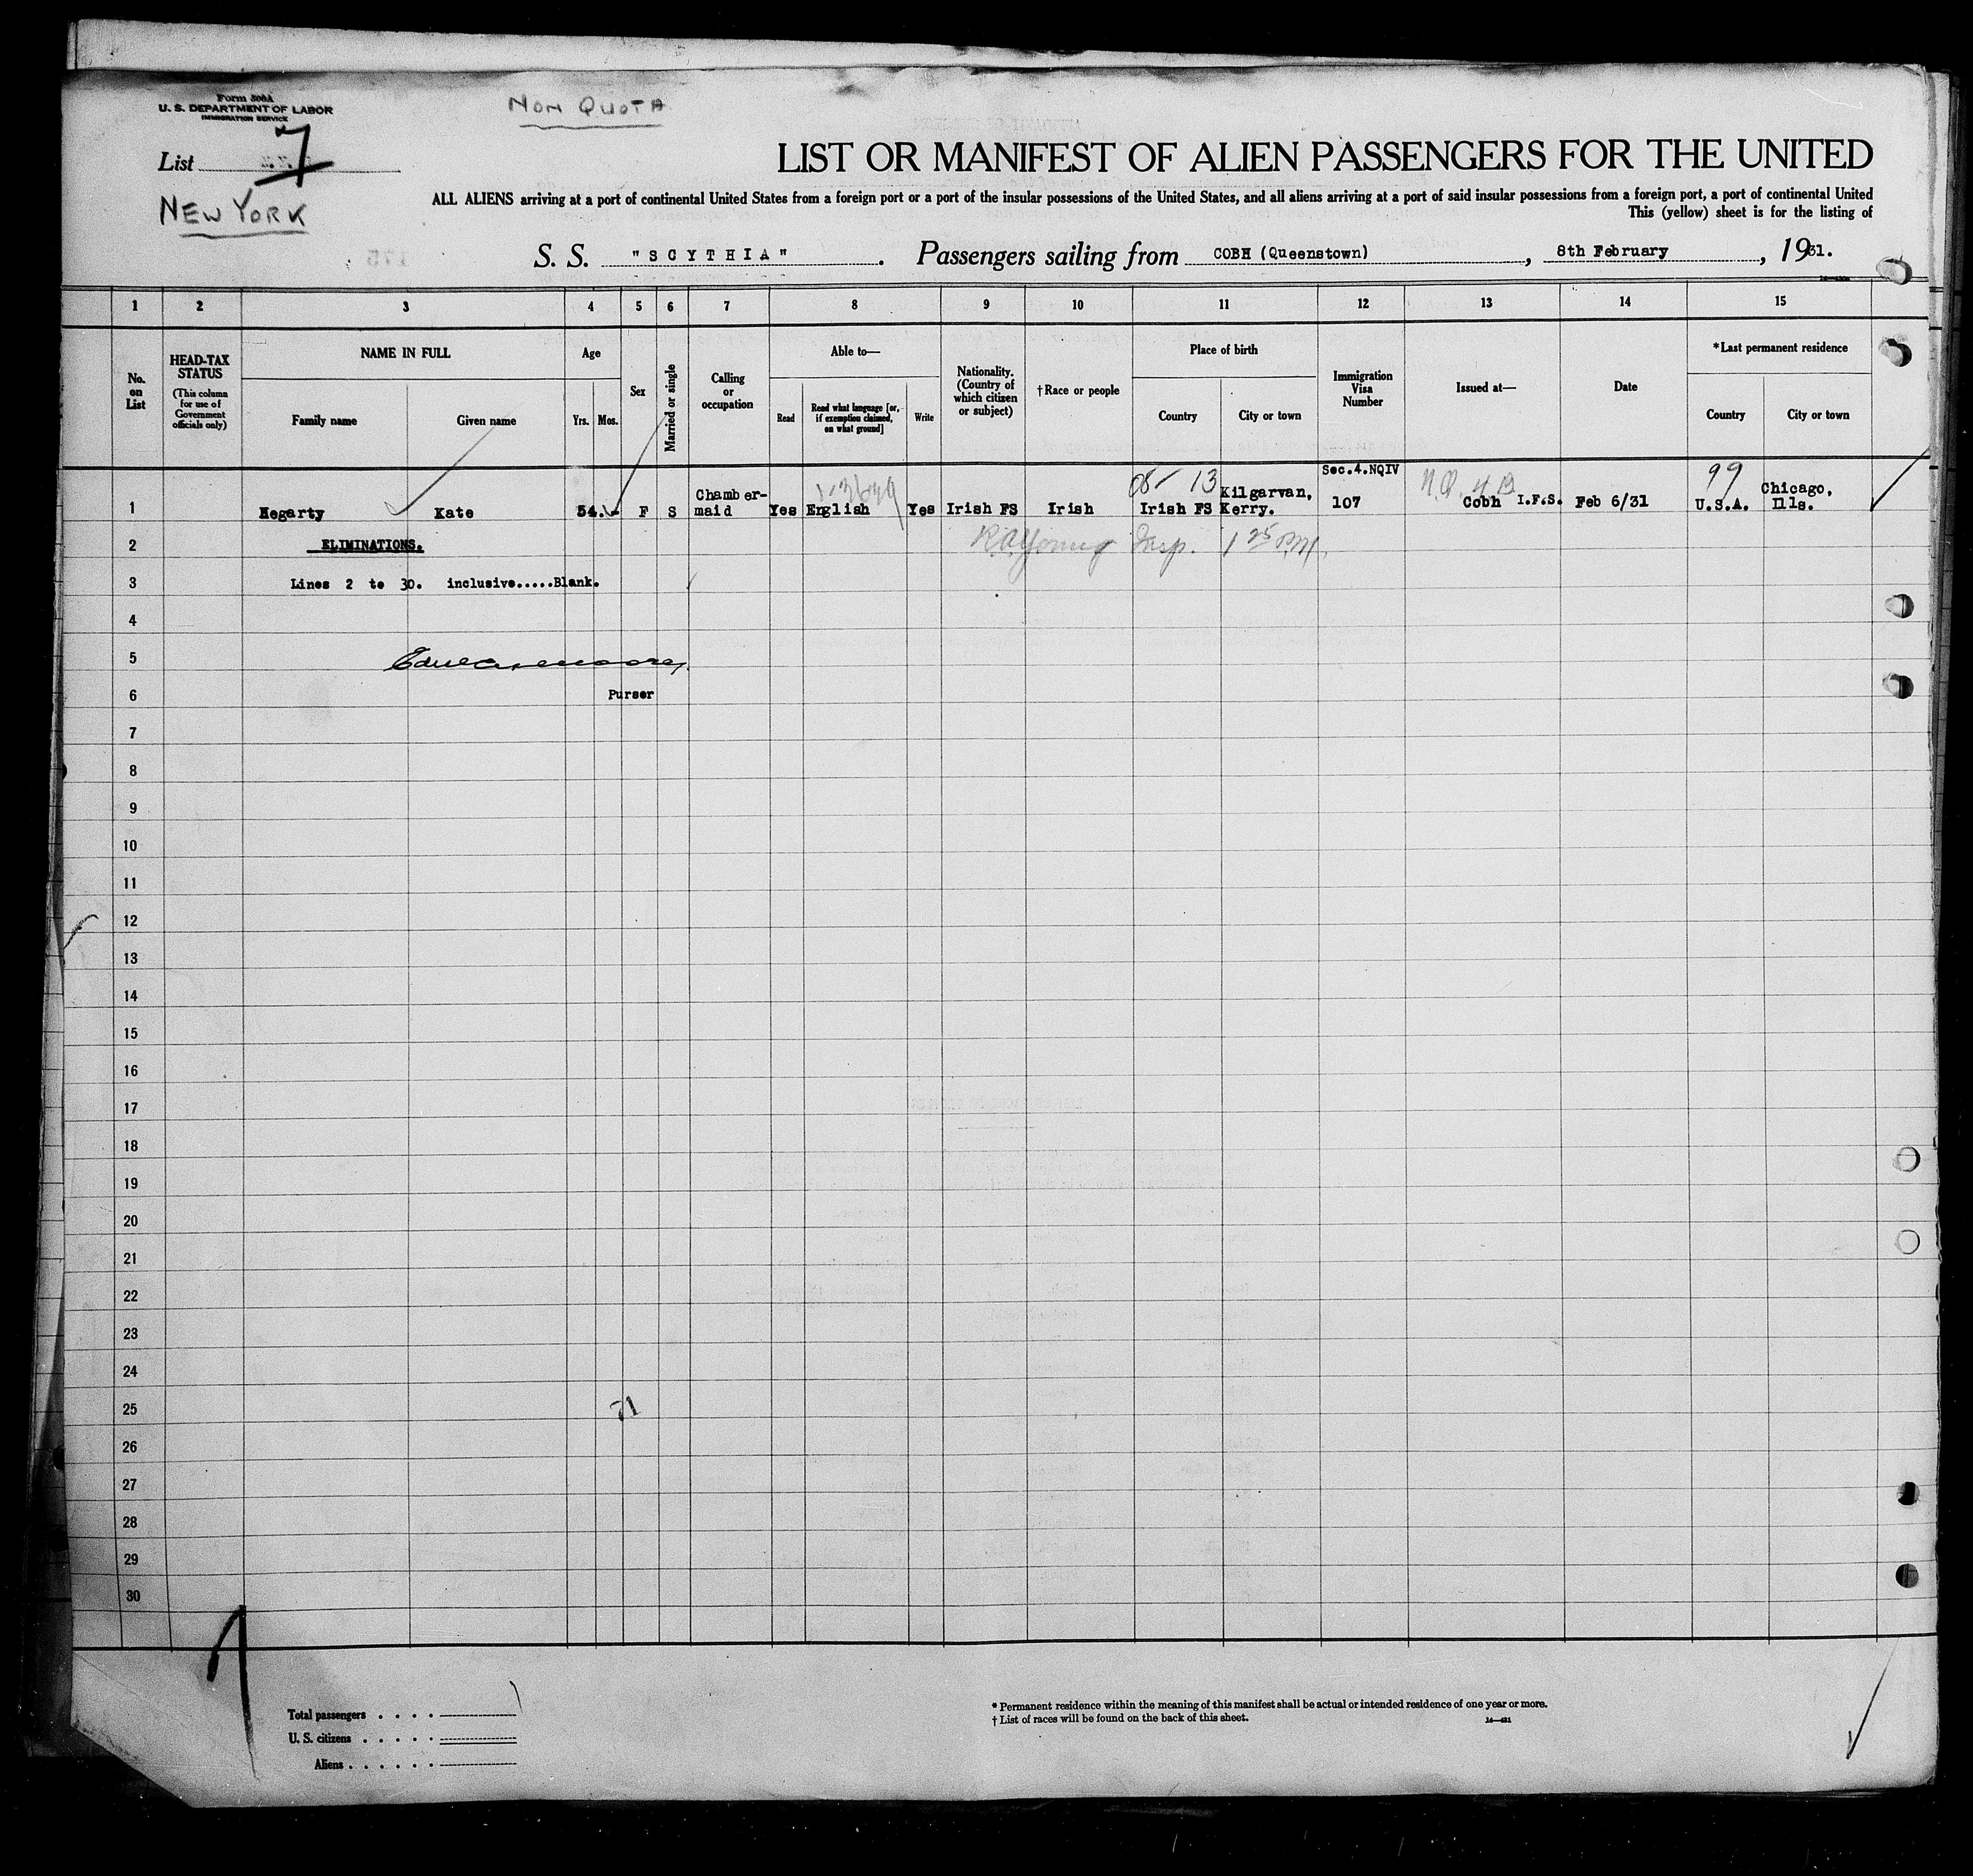 Form 500A
U. S. DEPARTMENT OF LABOR
IMMIGRATION SERVICE
NON QUOTA
List 7
NEW YORK
LIST OR MANIFEST OF ALIEN PASSENGERS FOR THE UNITED
ALL ALIENS arriving at a port of continental United States from a foreign port or a port of the insular possessions of the United States, and all aliens arriving at a port of said insular possessions from a foreign port, a port of continental United
This (yellow) sheet is for the listing of
S. S. "SCYTHIA". Passengers sailing from COBH (Queenstown), 8th February, 1931.
1 2 3 4 5 6 7 8 9 10 11 12 13 14 15
No. on List
HEAD-TAX STATUS
(This column for use of Government officials only)
NAME IN FULL
Family name Given name
Age
Yrs. Mos.
Sex
Married or single
Calling or occupation
Able to—
Read
Read what language [or, if exemption claimed, on what ground]
Write
Nationality. (Country of which citizen or subject)
† Race or people
Place of birth
Country City or town
Immigration Visa Number
Issued at—
Date
*Last permanent residence
Country City or town
Sec.4.NQIV
N.Q. 4 B
99
1 Hegarty Kate 54. F S Chamber-maid Yes English Yes Irish FS Irish Irish FS Kilgarvan, Kerry. 107 Cobh I.F.S. Feb 6/31 U.S.A. Chicago, Ills.
2 ELIMINATIONS. Insp. 1 25 PM
3 Lines 2 to 30. inclusive.....Blank.
4
5
6 Purser
7
8
9
10
11
12
13
14
15
16
17
18
19
20
21
22
23
24
25
26
27
28
29
30
Total passengers . . . .
U. S. citizens . . . . .
Aliens . . . . . .
* Permanent residence within the meaning of this manifest shall be actual or intended residence of one year or more.
† List of races will be found on the back of this sheet.